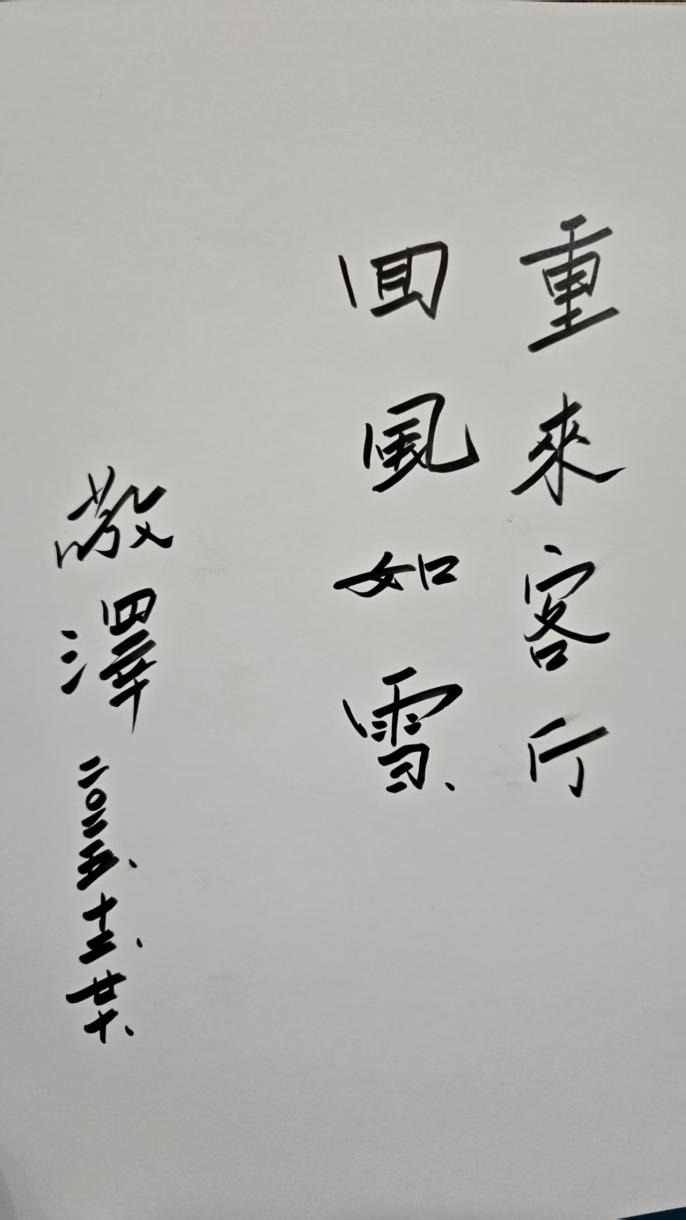 重來客行
回風如雪
敬澤
二〇二五、十二、廿